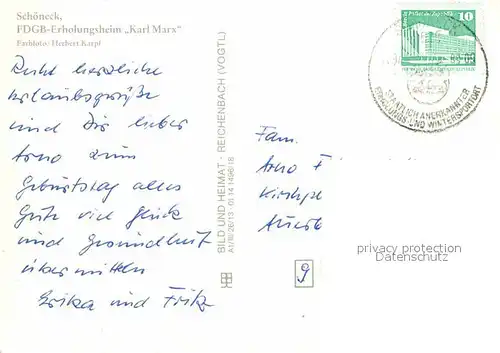 Schöneck,
FDGB-Erholungsheim „Karl Marx“
Farbfoto: Herbert Karpf
Recht herzliche
Urlaubsgrüße
und Dir lieber
Arno zum
Geburtstag alles
Gute viel Glück
und Gesundheit
übermitteln
Erika und Fritz
BILD UND HEIMAT · REICHENBACH (VOGTL)
10
STAATLICH ANERKANNTER
ERHOLUNGS- UND WINTERSPORTORT
Fam.
Arno F
Kirchpl
Auerb
9
privacy protection
Datenschutz